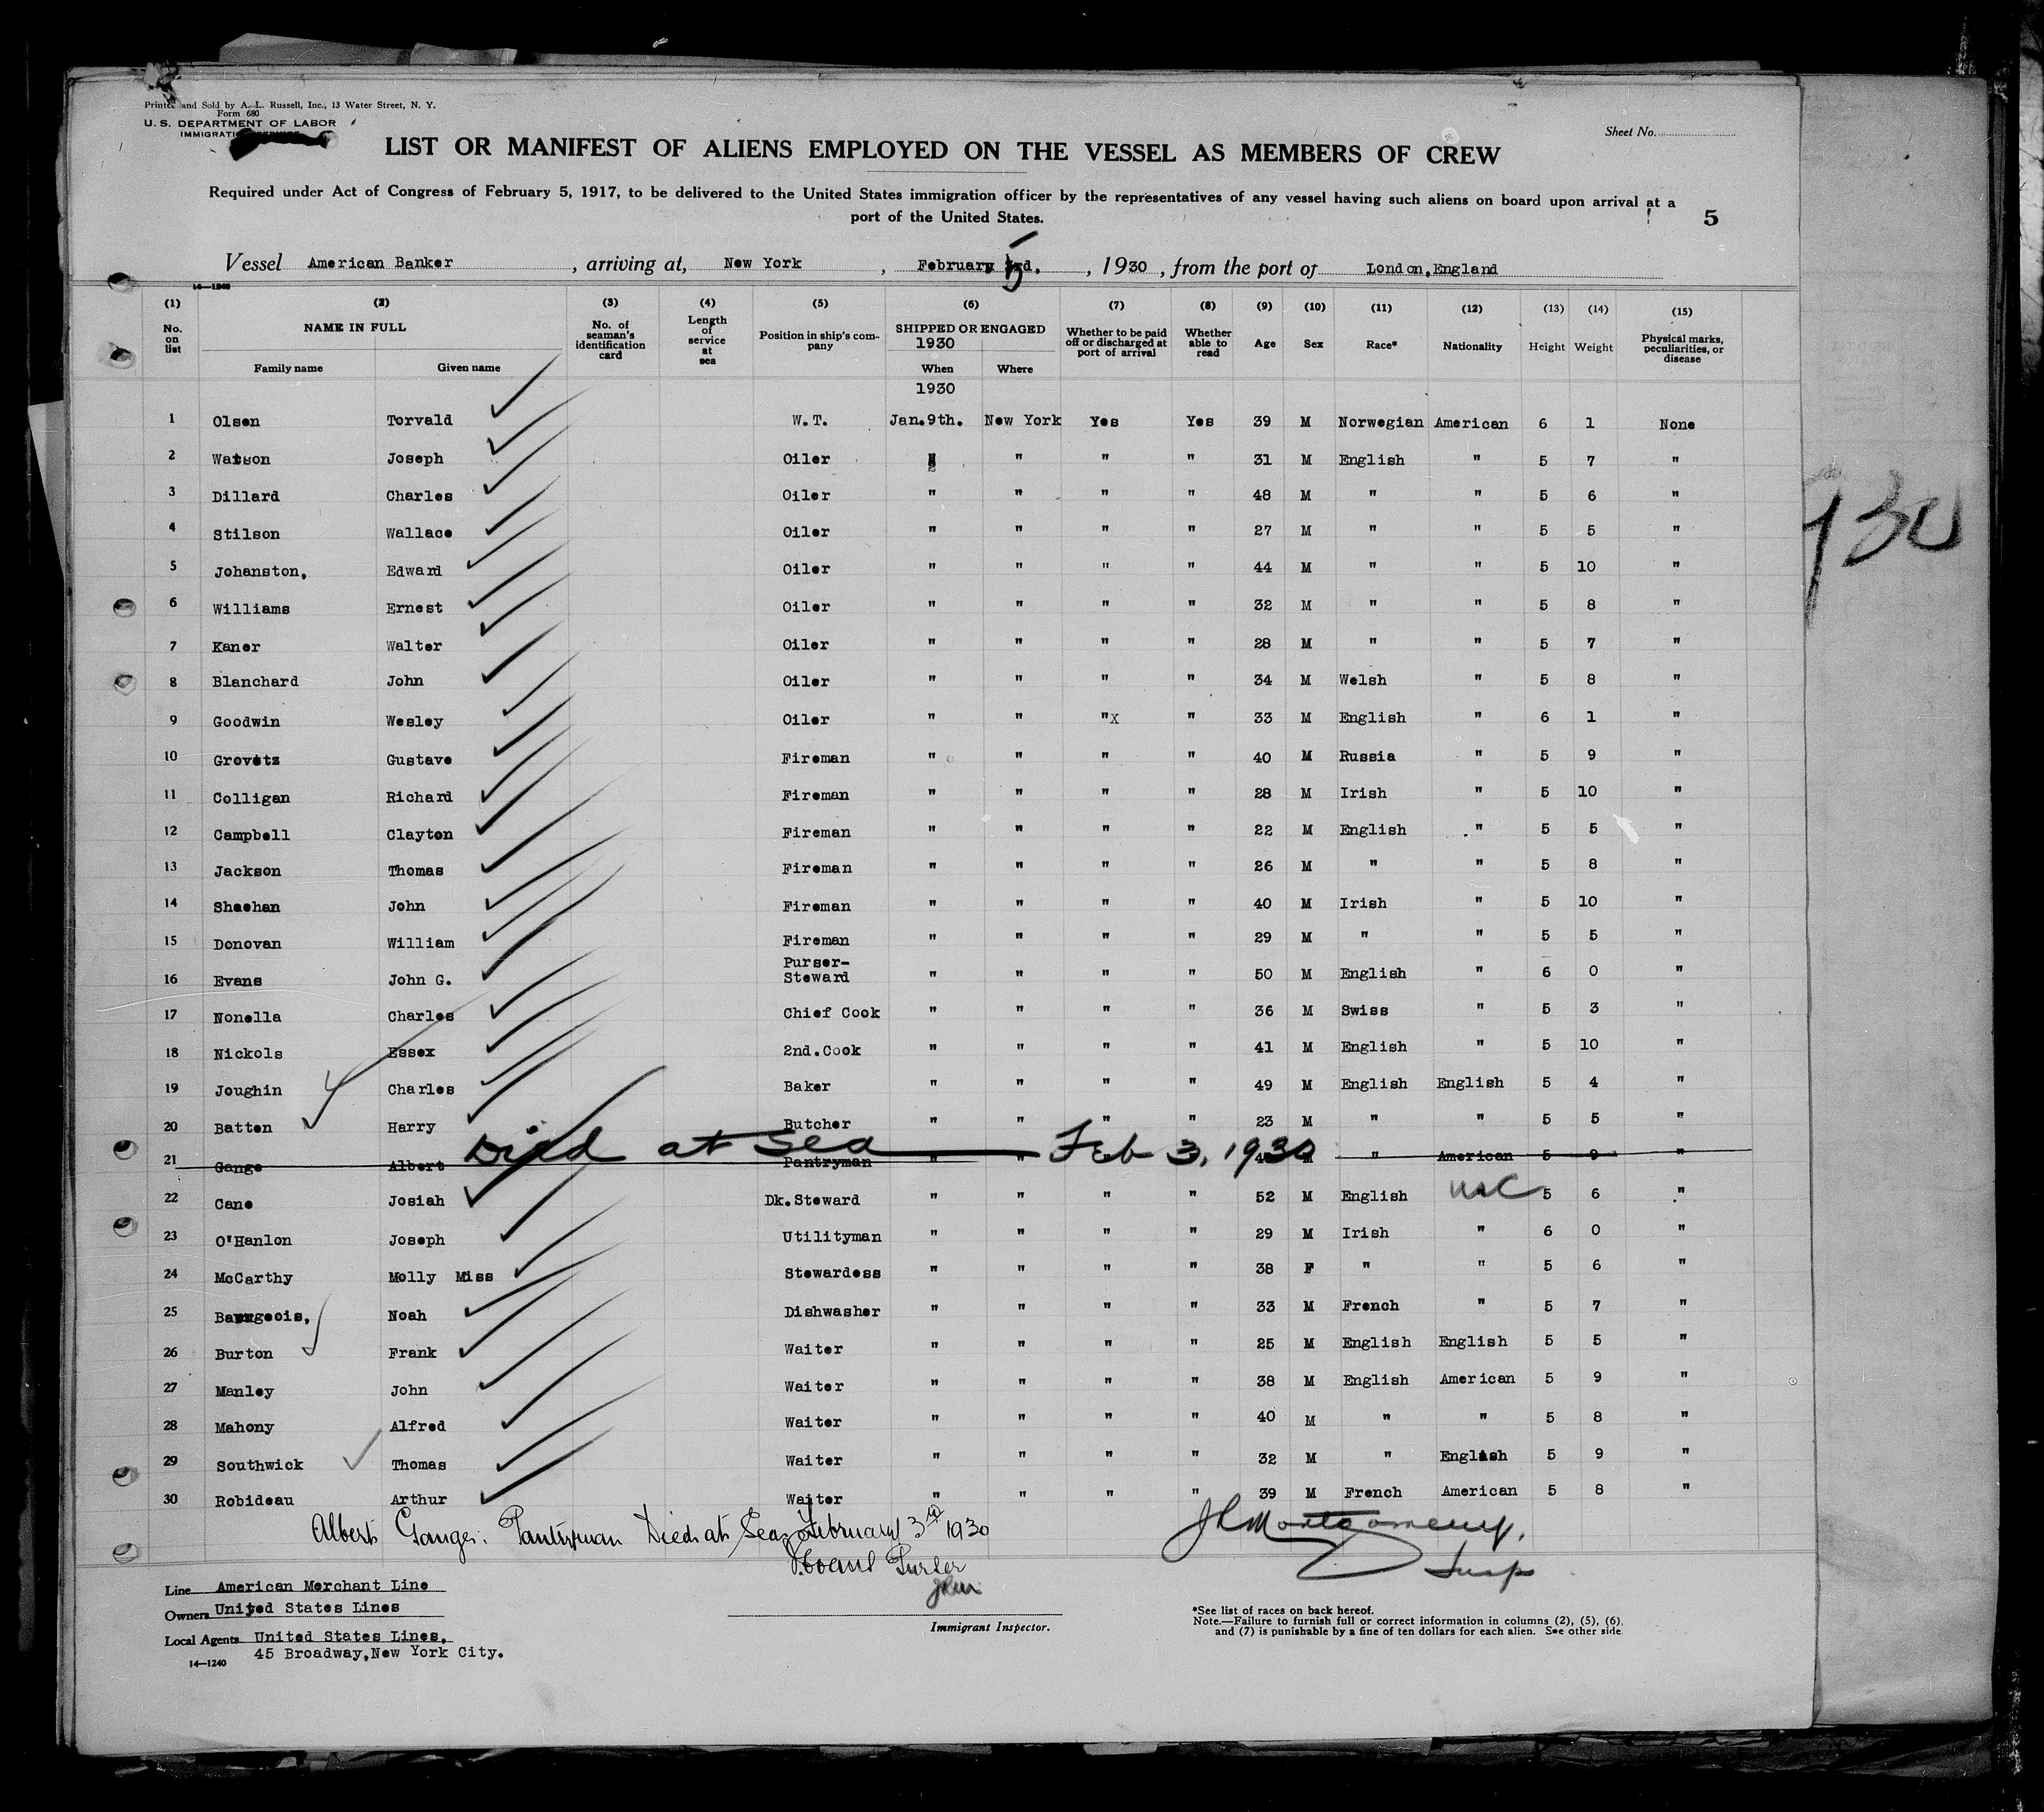 Printed and Sold by A. L. Russell, Inc., 13 Water Street, N. Y.
Form 680
U. S. DEPARTMENT OF LABOR
IMMIGRATION SERVICE
Sheet No.
LIST OR MANIFEST OF ALIENS EMPLOYED ON THE VESSEL AS MEMBERS OF CREW
Required under Act of Congress of February 5, 1917, to be delivered to the United States immigration officer by the representatives of any vessel having such aliens on board upon arrival at a
port of the United States.
5
Vessel American Banker, arriving at, New York, February 3rd. 5, 1930, from the port of London,England
14—1240
(1) (2) (3) (4) (5) (6) (7) (8) (9) (10) (11) (12) (13) (14) (15)
No. on list NAME IN FULL Family name Given name No. of seaman's identification card Length of service at sea Position in ship's company SHIPPED OR ENGAGED 1930 When Where Whether to be paid off or discharged at port of arrival Whether able to read Age Sex Race* Nationality Height Weight Physical marks, peculiarities, or disease
1930
1 Olsen Torvald W.T. Jan.9th. New York Yes Yes 39 M Norwegian American 6 1 None
2 Watson Joseph Oiler " " " " 31 M English " 5 7 "
3 Dillard Charles Oiler " " " " 48 M " " 5 6 "
4 Stilson Wallace Oiler " " " " 27 M " " 5 5 "
5 Johanston, Edward Oiler " " " " 44 M " " 5 10 "
6 Williams Ernest Oiler " " " " 32 M " " 5 8 "
7 Kaner Walter Oiler " " " " 28 M " " 5 7 "
8 Blanchard John Oiler " " " " 34 M Welsh " 5 8 "
9 Goodwin Wesley Oiler " " "x " 33 M English " 6 1 "
10 Grovetz Gustave Fireman " " " " 40 M Russia " 5 9 "
11 Colligan Richard Fireman " " " " 28 M Irish " 5 10 "
12 Campbell Clayton Fireman " " " " 22 M English " 5 5 "
13 Jackson Thomas Fireman " " " " 26 M " " 5 8 "
14 Sheehan John Fireman " " " " 40 M Irish " 5 10 "
15 Donovan William Fireman " " " " 29 M " " 5 5 "
16 Evans John G. Purser-Steward " " " " 50 M English " 6 0 "
17 Nonella Charles Chief Cook " " " " 36 M Swiss " 5 3 "
18 Nickols Essex 2nd.Cook " " " " 41 M English " 5 10 "
19 Joughin Charles Baker " " " " 49 M English English 5 4 "
20 Batten Harry Butcher " " " " 23 M " " 5 5 "
21 Gange Albert Pantryman " " M " American 5 9 "
Died at Sea Feb 3, 1930
22 Cane Josiah Dk.Steward " " " " 52 M English USC 5 6 "
23 O'Hanlon Joseph Utilityman " " " " 29 M Irish " 6 0 "
24 McCarthy Molly Miss Stewardess " " " " 38 F " " 5 6 "
25 Bourgeois, Noah Dishwasher " " " " 33 M French " 5 7 "
26 Burton Frank Waiter " " " " 25 M English English 5 5 "
27 Manley John Waiter " " " " 38 M English American 5 9 "
28 Mahony Alfred Waiter " " " " 40 M " " 5 8 "
29 Southwick Thomas Waiter " " " " 32 M " English 5 9 "
30 Robideau Arthur Waiter " " " " 39 M French American 5 8 "
Albert Gange: Pantryman Died at Sea February 3rd 1930
Purser
JLMontgomery,
Insp
Line American Merchant Line
Owners United States Lines
Local Agents United States Lines,
45 Broadway,New York City.
14—1240
Immigrant Inspector.
*See list of races on back hereof.
Note.—Failure to furnish full or correct information in columns (2), (5), (6),
and (7) is punishable by a fine of ten dollars for each alien. See other side
930